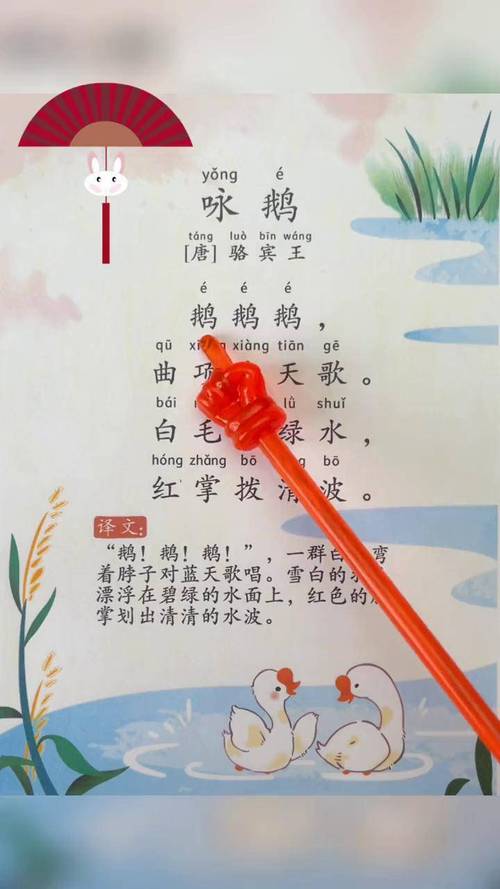 yǒng é
咏鹅
táng luò bīn wáng
[唐]骆宾王
é é é
鹅鹅鹅，
qū xiàng tiān gē
曲项天歌。
bái lǜ shuǐ
白毛绿水，
hóng zhǎng bō bō
红掌拨清波。
译文：
“鹅！鹅！鹅！”，一群白弯
着脖子对蓝天歌唱。雪白的
漂浮在碧绿的水面上，红色的
掌划出清清的水波。